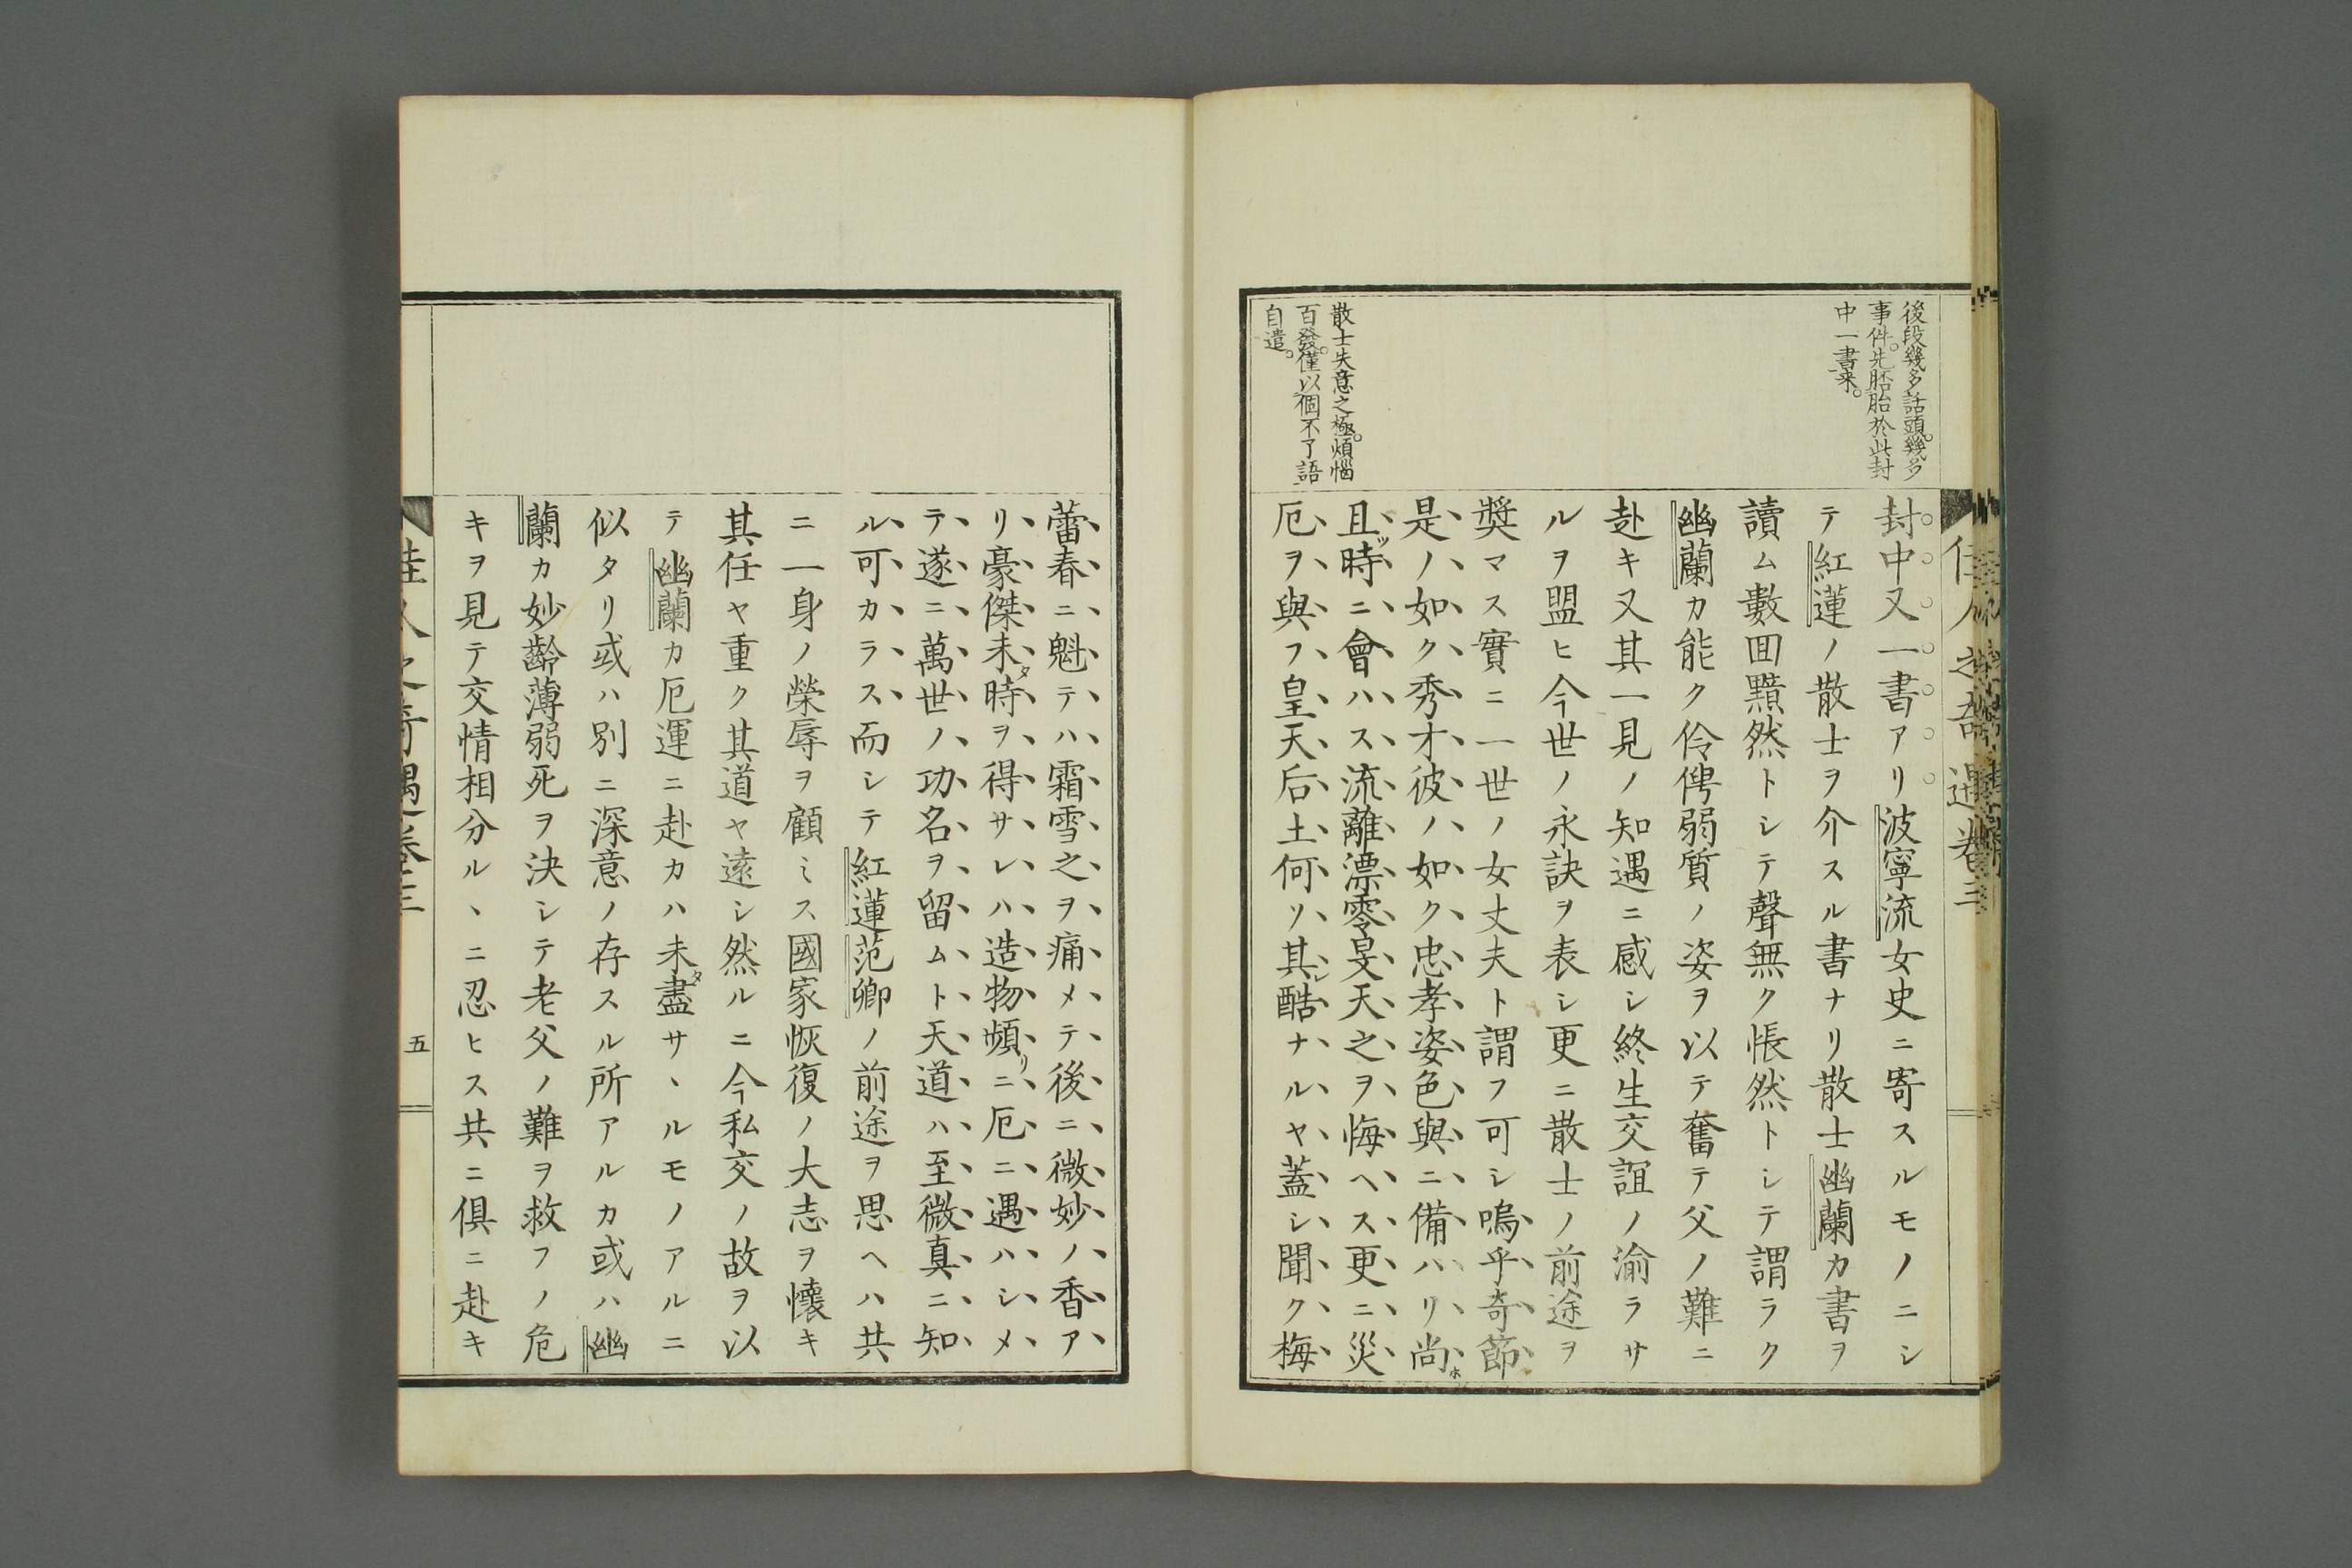 後段幾多話頭。幾多
事件。先胚胎於此封
中一書来。
散士失意之極。煩惱
百發。僅以個不了語
自遣。
佳人之奇遇卷三
封中又一書アリ波寧流女史ニ寄スルモノニシ
テ紅蓮ノ散士ヲ介スル書ナリ散士幽蘭カ書ヲ
讀ム數囬黯然トシテ聲無ク悵然トシテ謂ラク
幽蘭カ能ク伶俜弱質ノ姿ヲ以テ奮テ父ノ難ニ
赴キ又其一見ノ知遇ニ感シ終生交誼ノ渝ラサ
ルヲ盟ヒ今世ノ永訣ヲ表シ更ニ散士ノ前途ヲ
奬マス實ニ一世ノ女丈夫ト謂フ可シ嗚乎奇節
是ノ如ク秀才彼ノ如ク忠孝姿色與ニ備ハリ尚ホ
且ツ時ニ會ハス流離漂零旻天之ヲ悔ヘス更ニ災
厄ヲ與フ皇天后土何ソ其レ酷ナルヤ蓋シ聞ク梅
蕾春ニ魁テハ霜雪之ヲ痛メテ後ニ微妙ノ香ア
リ豪傑未タ時ヲ得サレハ造物頻リニ厄ニ遇ハシメ
テ遂ニ萬世ノ功名ヲ留ムト天道ハ至微真ニ知
ル可カラス而シテ紅蓮范卿ノ前途ヲ思ヘハ共
ニ一身ノ榮辱ヲ顧ミス國家恢復ノ大志ヲ懷キ
其任ヤ重ク其道ヤ遠シ然ルニ今私交ノ故ヲ以
テ幽蘭カ厄運ニ赴カハ未タ盡サヽルモノアルニ
似タリ或ハ別ニ深意ノ存スル所アルカ或ハ幽
蘭カ妙齡薄弱死ヲ決シテ老父ノ難ヲ救フノ危
キヲ見テ交情相分ルヽニ忍ヒス共ニ俱ニ赴キ
佳人之奇遇卷三
五